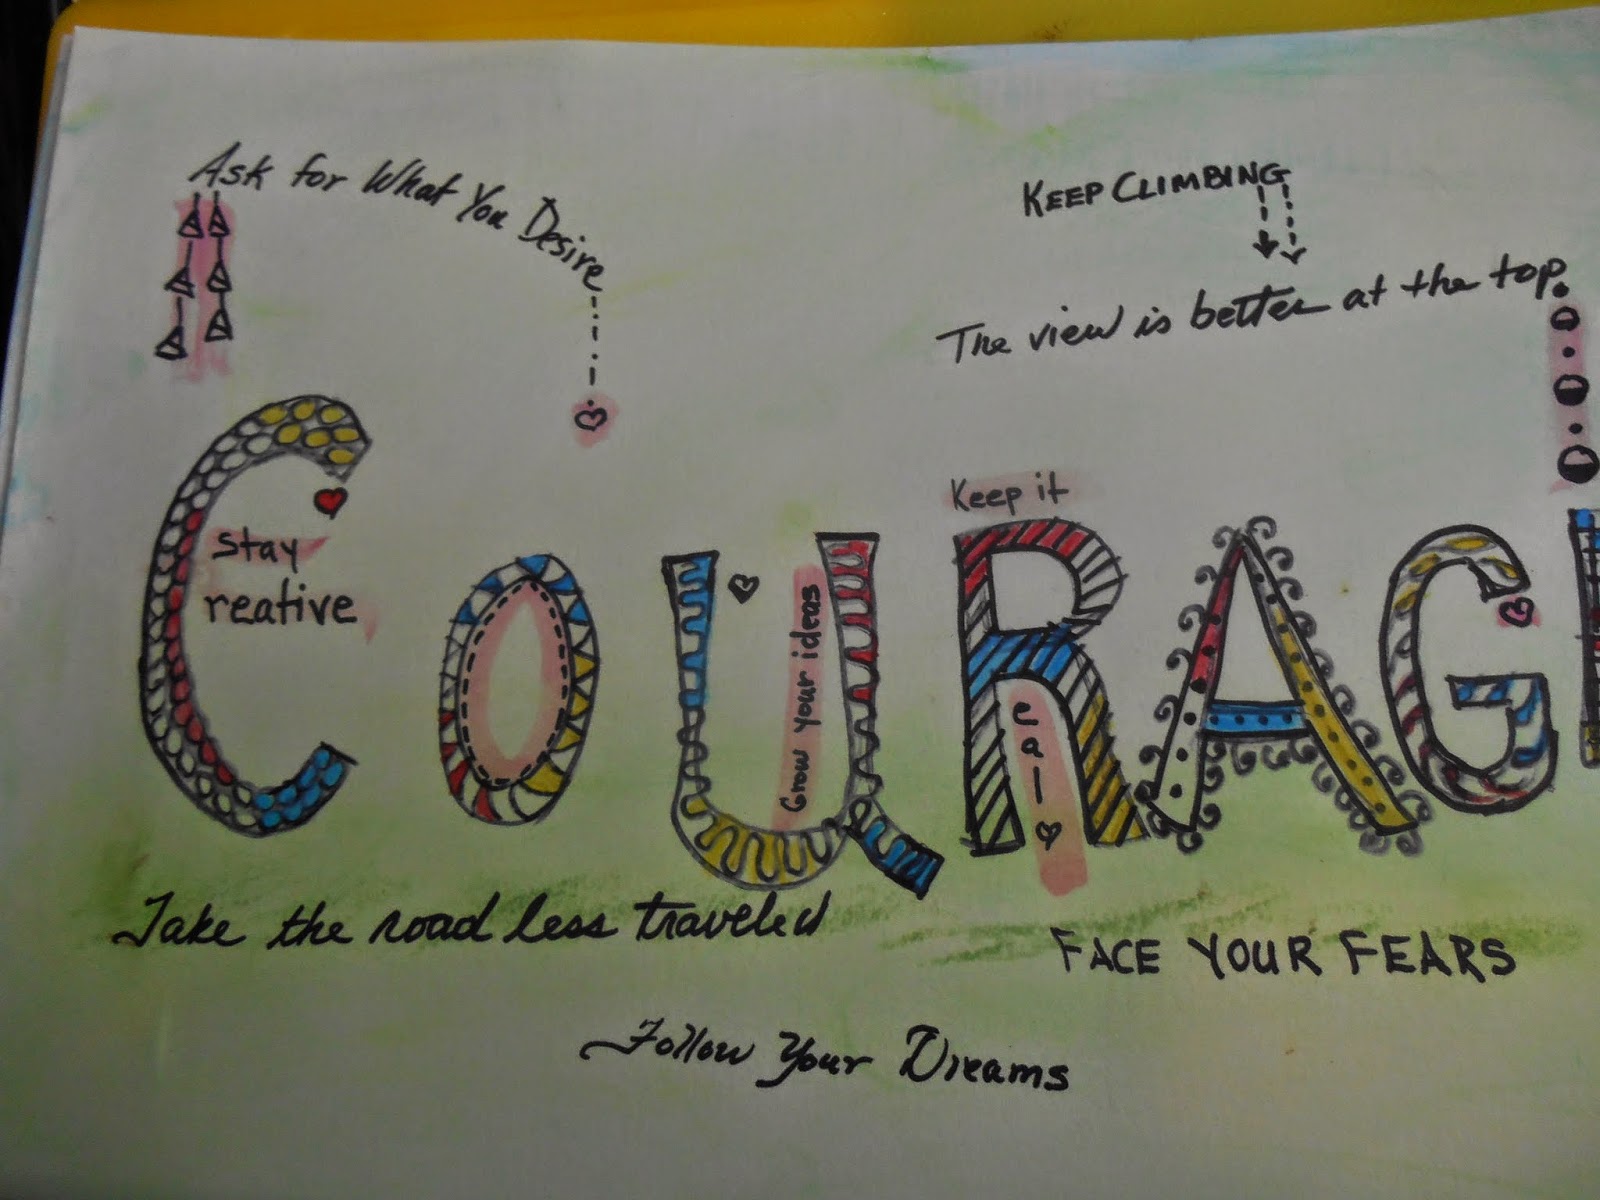 Ask for What You Desire
KEEP CLIMBING
The view is better at the top.
Keep it
Stay
reative
Grow your ideas
COURAGE
eal
Take the road less traveled
FACE YOUR FEARS
Follow Your Dreams